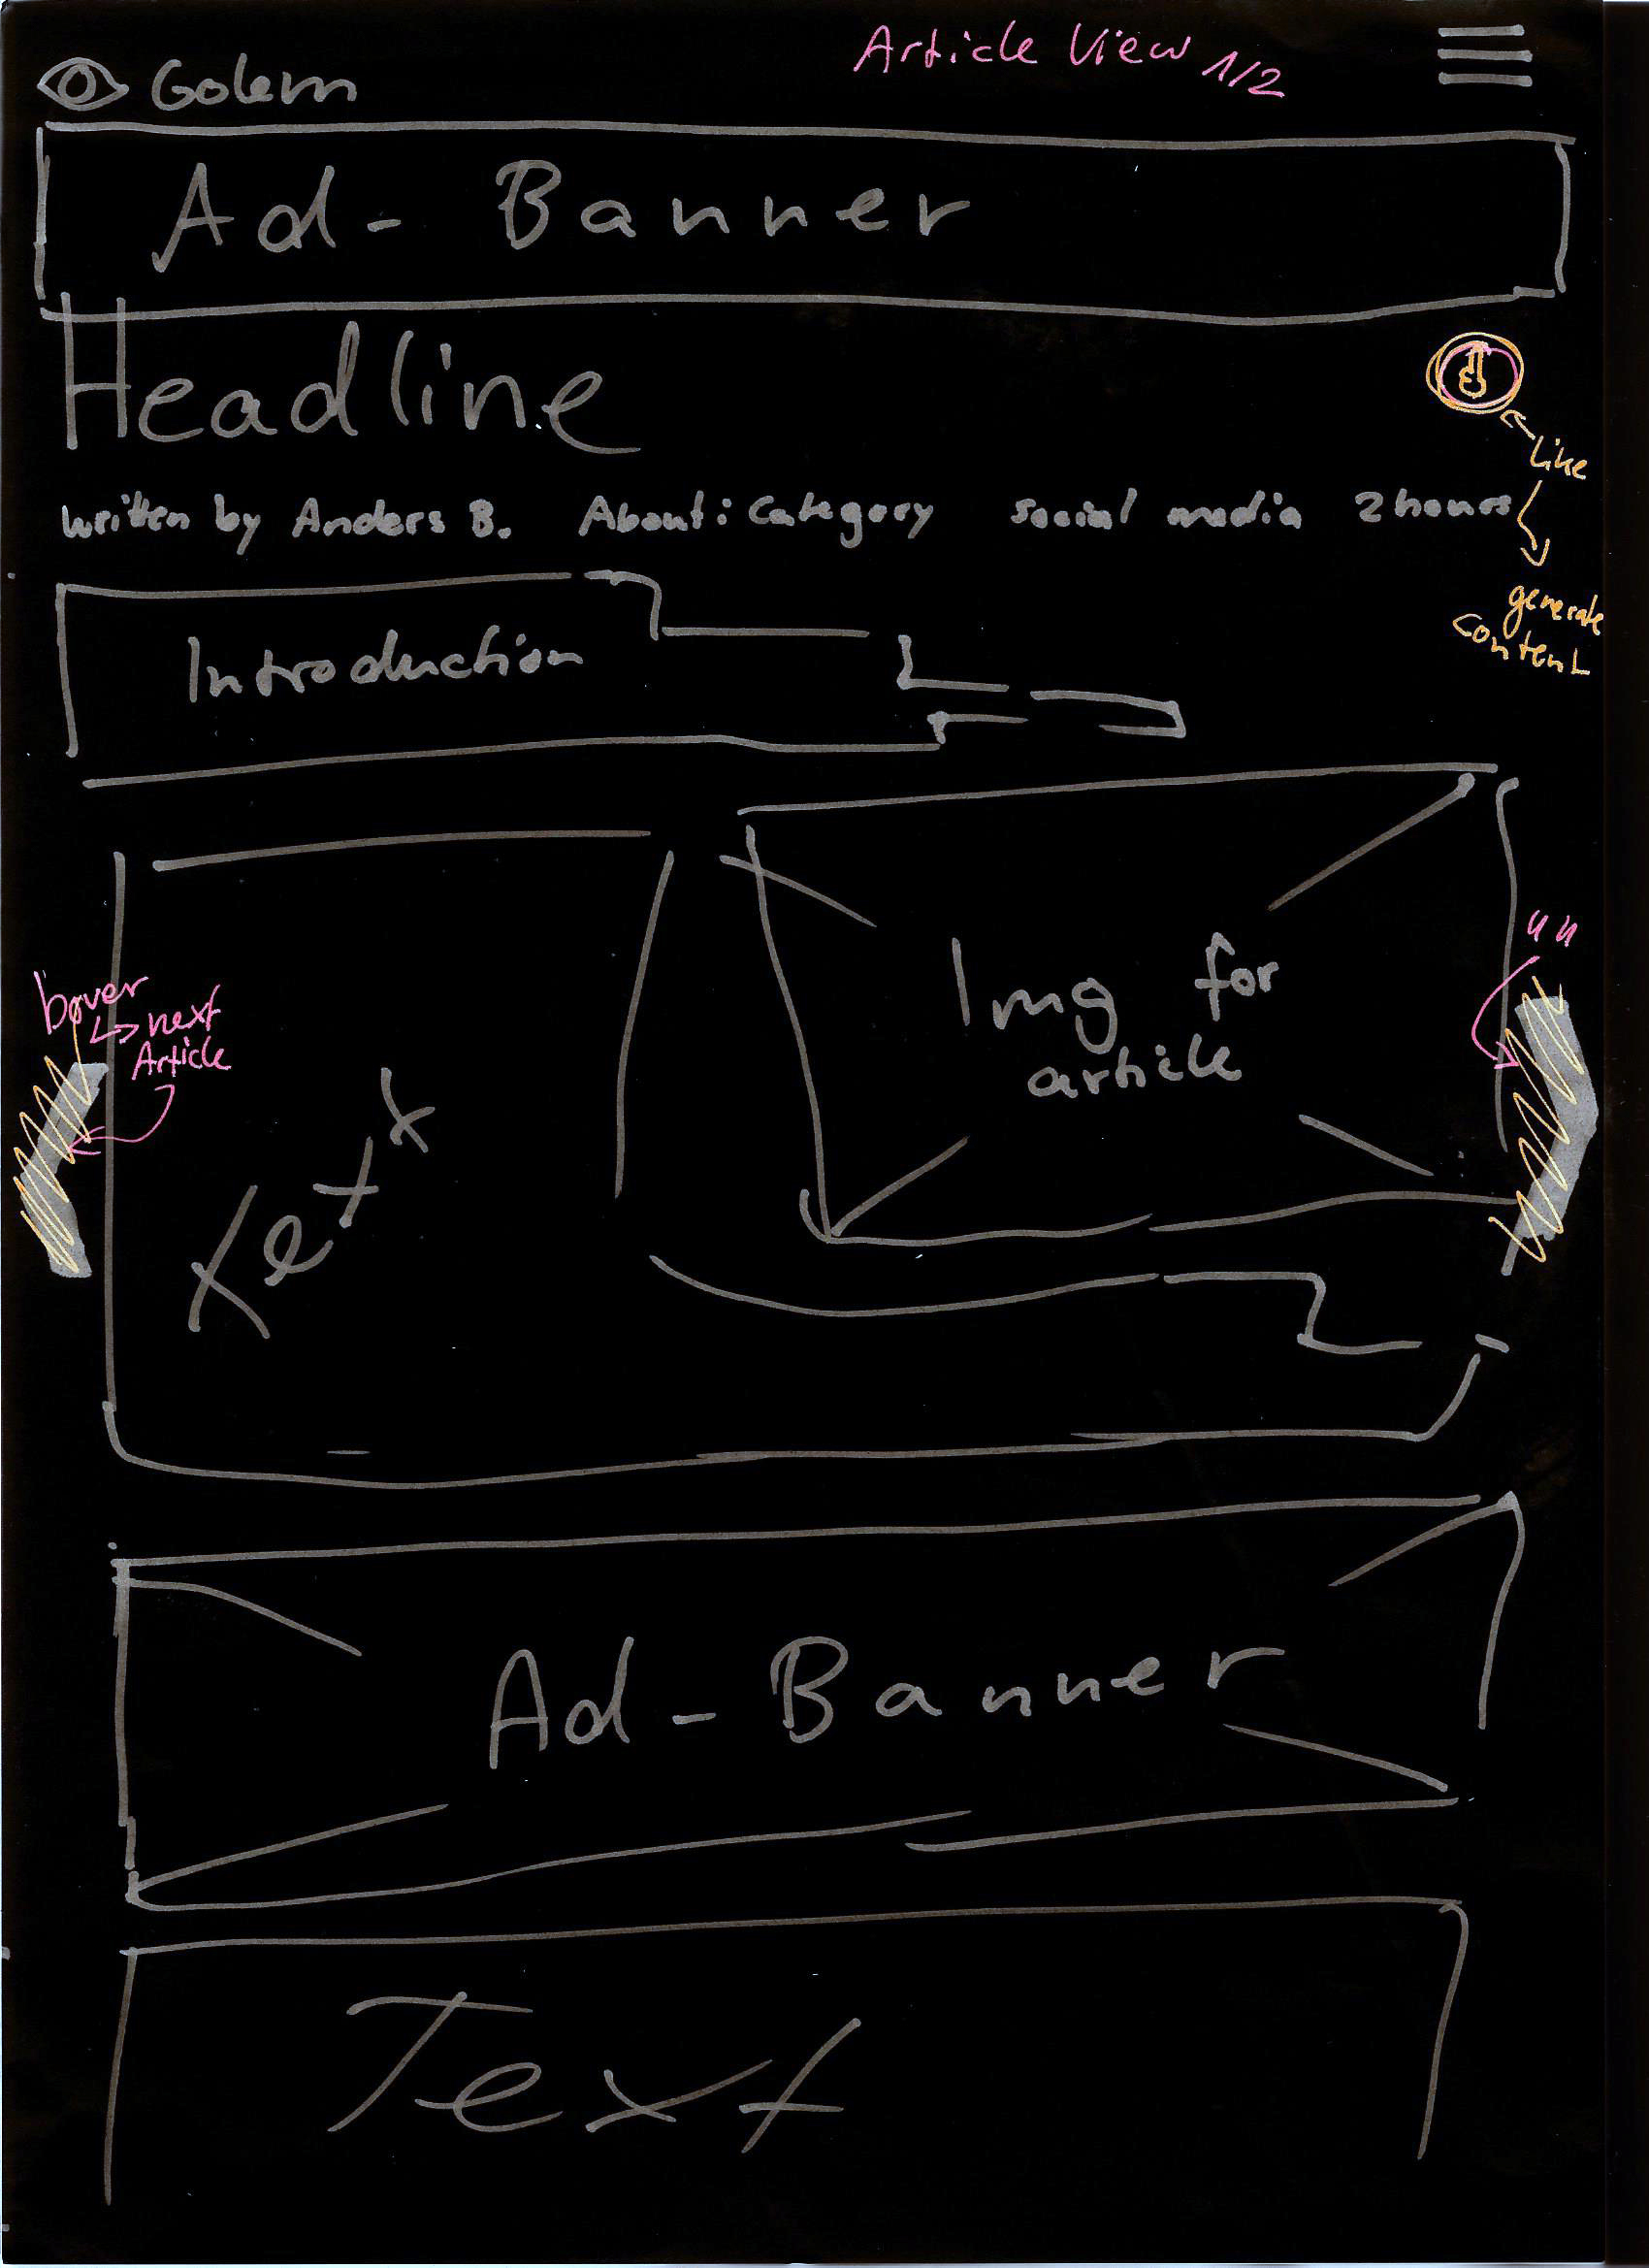 Article View 1/2
Golem
Ad-Banner
Headline
Like
written by Anders B. About: Category social media 2 hours
generate
content
Introduction
Img for
article
" "
hover
↳ next
Article
Text
Ad-Banner
Text